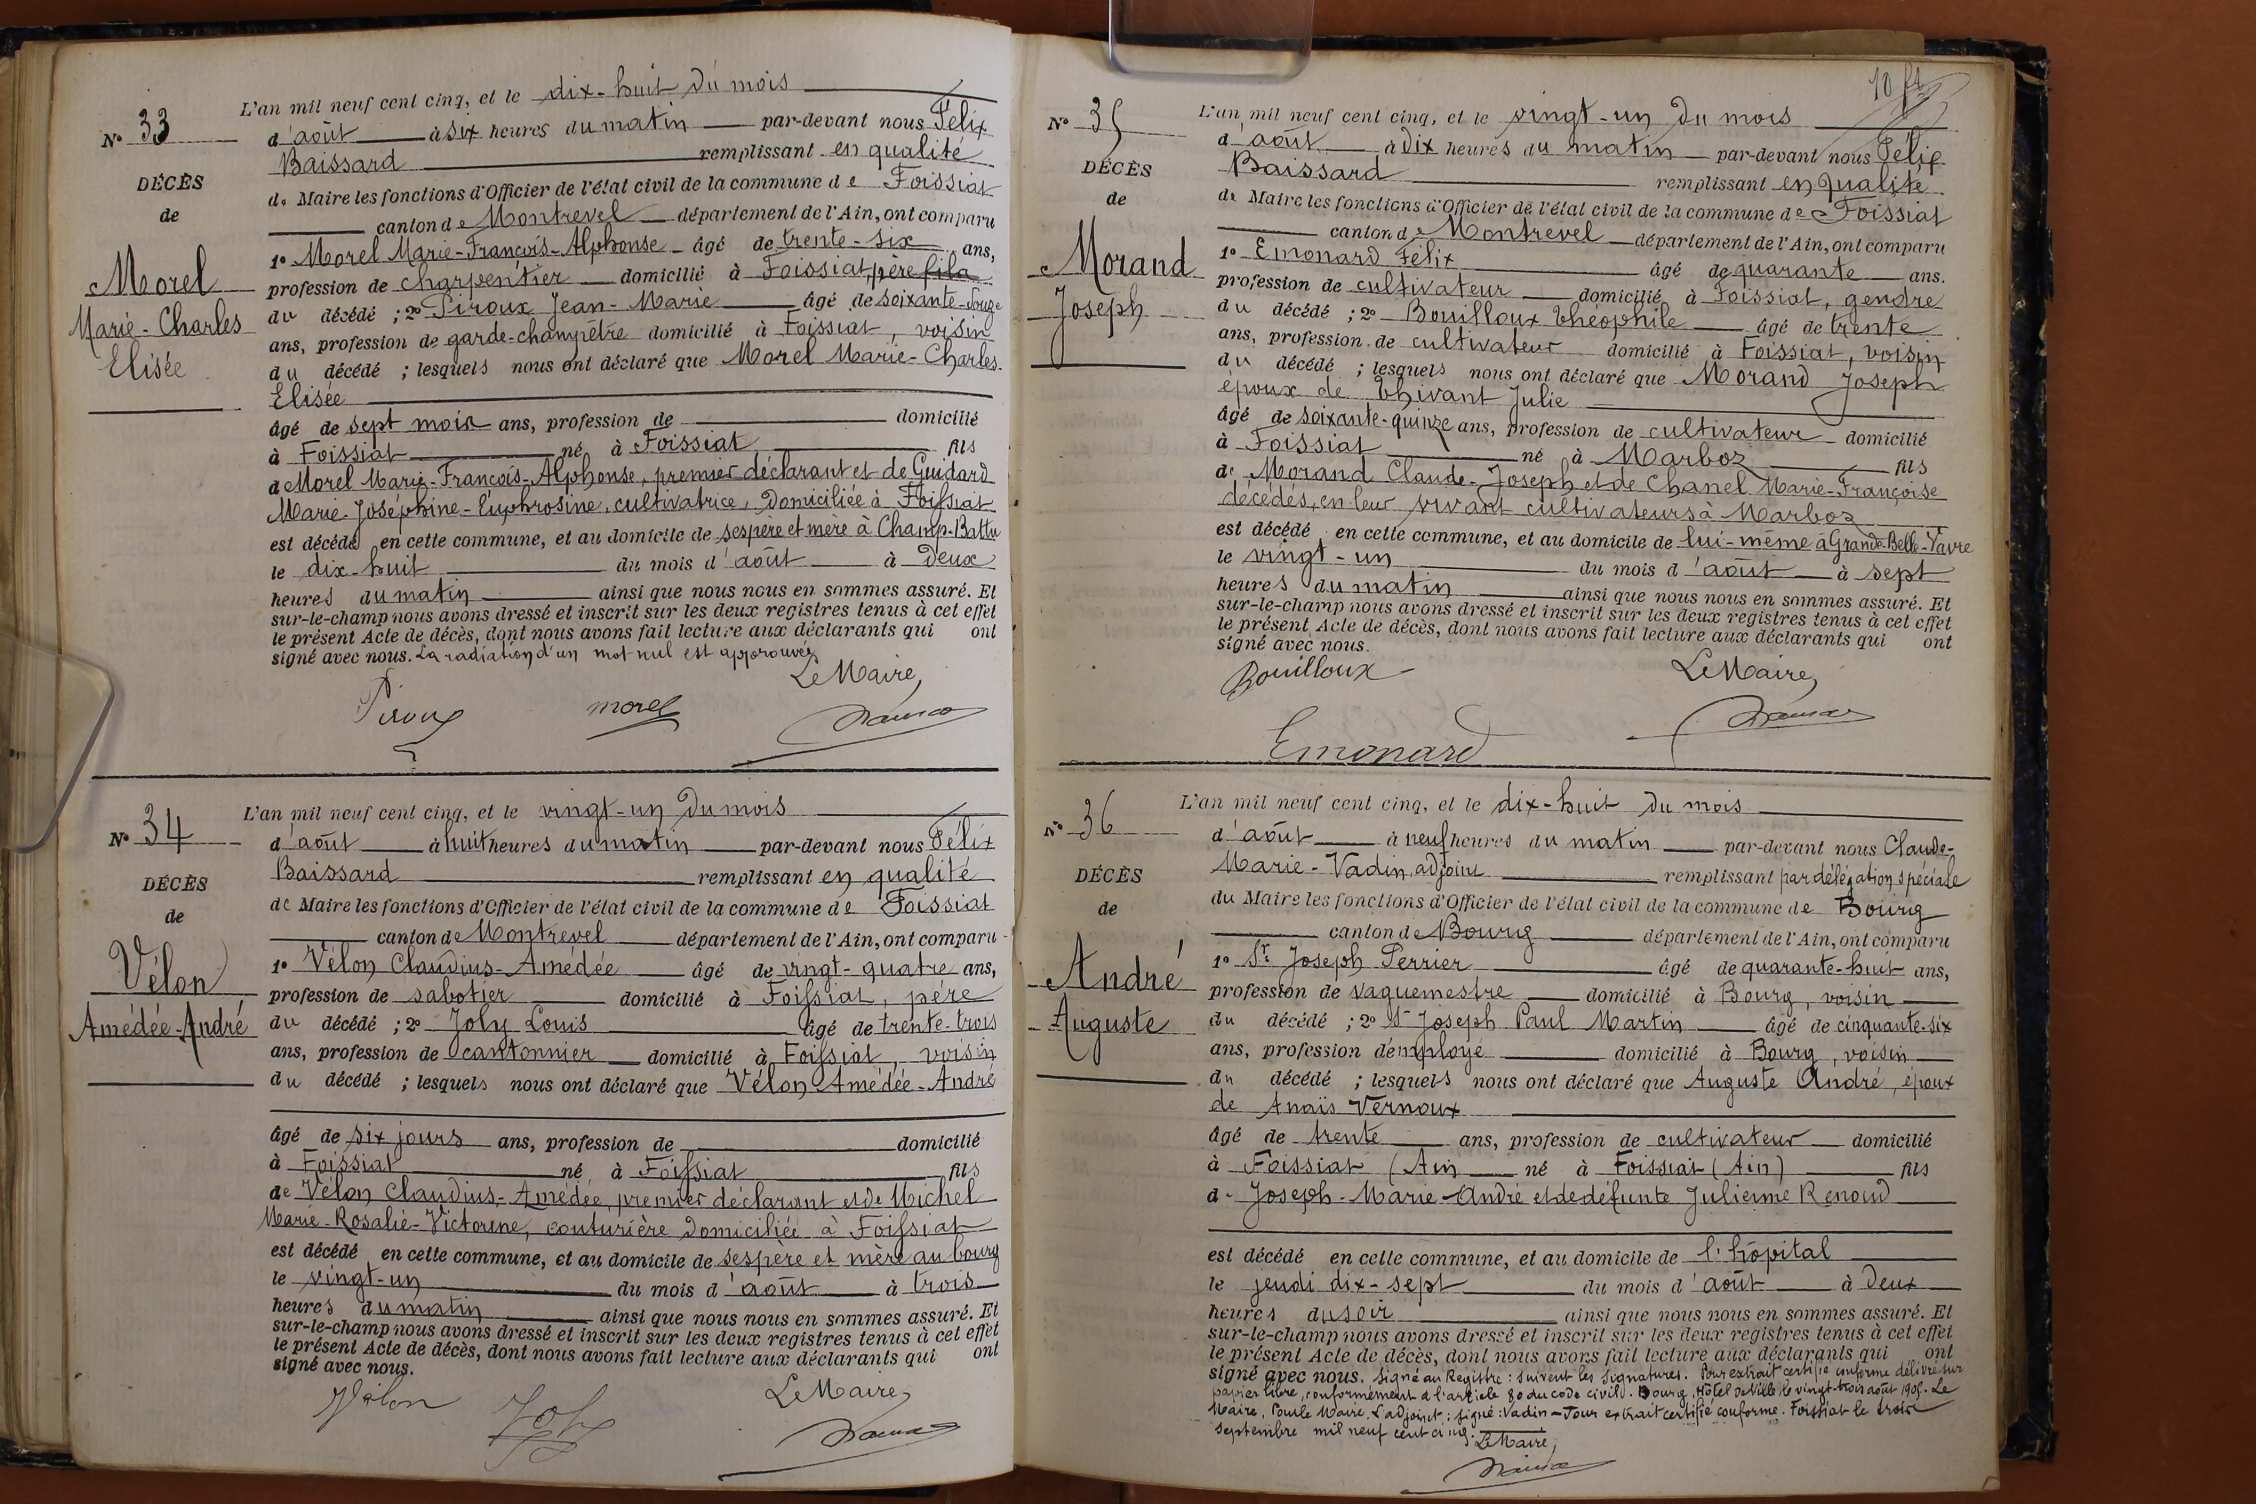 L'an mil neuf cent cinq, et le dix-huit du mois
N° 33
d'août à six heures du matin par-devant nous Félix
Baissard remplissant en qualité
DÉCÈS
de Maire les fonctions d'Officier de l'état civil de la commune de Foissiat
de
canton de Montrevel département de l'Ain, ont comparu
1° Morel Marie-François-Alphonse âgé de trente-six ans,
Morel
profession de charpentier domicilié à Foissiat, père fils
du décédé ; 2° Piroux Jean-Marie âgé de soixante-douze
Marie-Charles
ans, profession de garde-champêtre domicilié à Foissiat, voisin
Elisée
du décédé ; lesquels nous ont déclaré que Morel Marie-Charles-
Elisée
âgé de sept mois ans, profession de domicilié
à Foissiat né à Foissiat fils
de Morel Marie-François-Alphonse, premier déclarant et de Guidard
Marie-Joséphine-Euphrosine, cultivatrice, domiciliée à Foissiat
est décédé en cette commune, et au domicile de ses père et mère à Champ-Battu
le dix-huit du mois d'août à deux
heures du matin ainsi que nous nous en sommes assuré. Et
sur-le-champ nous avons dressé et inscrit sur les deux registres tenus à cet effet
le présent Acte de décès, dont nous avons fait lecture aux déclarants qui ont
signé avec nous. La radiation d'un mot nul est approuvée
Le Maire,
Piroux morel
L'an mil neuf cent cinq, et le vingt-un du mois
N° 34
d'août à huit heures du matin par-devant nous Félix
Baissard remplissant en qualité
DÉCÈS
de Maire les fonctions d'Officier de l'état civil de la commune de Foissiat
de
canton de Montrevel département de l'Ain, ont comparu
1° Vélon Claudius-Amédée âgé de vingt-quatre ans,
Vélon
profession de sabotier domicilié à Foissiat, père
Amédée-André
du décédé ; 2° Joly Louis âgé de trente-trois
ans, profession de cantonnier domicilié à Foissiat, voisin
du décédé ; lesquels nous ont déclaré que Vélon Amédée-André
âgé de six jours ans, profession de domicilié
à Foissiat né à Foissiat fils
de Vélon Claudius-Amédée, premier déclarant et de Michel
Marie-Rosalie-Victorine, couturière domiciliée à Foissiat
est décédé en cette commune, et au domicile de ses père et mère au bourg
le vingt-un du mois d'août à trois
heures du matin ainsi que nous nous en sommes assuré. Et
sur-le-champ nous avons dressé et inscrit sur les deux registres tenus à cet effet
le présent Acte de décès, dont nous avons fait lecture aux déclarants qui ont
signé avec nous.
Le Maire,
Vélon Joly
L'an mil neuf cent cinq, et le vingt-un du mois
N° 35
d'août à dix heures du matin par-devant nous Félix
Baissard remplissant en qualité
DÉCÈS
de Maire les fonctions d'Officier de l'état civil de la commune de Foissiat
de
canton de Montrevel département de l'Ain, ont comparu
1° Emonard Félix âgé de quarante ans.
Morand
profession de cultivateur domicilié à Foissiat, gendre
Joseph
du décédé ; 2° Bouilloux Théophile âgé de trente
ans, profession de cultivateur domicilié à Foissiat, voisin
du décédé ; lesquels nous ont déclaré que Morand Joseph
époux de Thivant Julie
âgé de soixante-quinze ans, profession de cultivateur domicilié
à Foissiat né à Marboz fils
de Morand Claude-Joseph et de Chanel Marie-Françoise
décédés, en leur vivant cultivateurs à Marboz
est décédé en cette commune, et au domicile de lui-même à Grande-Belle-Vavre
le vingt-un du mois d'août à sept
heures du matin ainsi que nous nous en sommes assuré. Et
sur-le-champ nous avons dressé et inscrit sur les deux registres tenus à cet effet
le présent Acte de décès, dont nous avons fait lecture aux déclarants qui ont
signé avec nous.
Bouilloux Le Maire,
Emonard
L'an mil neuf cent cinq, et le dix-huit du mois
N° 36
d'août à neuf heures du matin par-devant nous Claude-
Marie-Vadin, adjoint remplissant par délégation spéciale
DÉCÈS
du Maire les fonctions d'Officier de l'état civil de la commune de Bourg
de
canton de Bourg département de l'Ain, ont comparu
1° Sr Joseph Perrier âgé de quarante-huit ans,
André
profession de vaguemestre domicilié à Bourg, voisin
Auguste
du décédé ; 2° Sr Joseph Paul Martin âgé de cinquante-six
ans, profession d'employé domicilié à Bourg, voisin
du décédé ; lesquels nous ont déclaré que Auguste André, époux
de Anaïs Vernoux
âgé de trente ans, profession de cultivateur domicilié
à Foissiat (Ain né à Foissiat (Ain) fils
de Joseph-Marie-André et de défunte Julienne Renoud
est décédé en cette commune, et au domicile de l'hôpital
le jeudi dix-sept du mois d'août à deux
heures du soir ainsi que nous nous en sommes assuré. Et
sur-le-champ nous avons dressé et inscrit sur les deux registres tenus à cet effet
le présent Acte de décès, dont nous avons fait lecture aux déclarants qui ont
signé avec nous. Signé au Registre : suivent les signatures. Pour extrait certifié conforme délivré sur
papier libre, conformément à l'article 80 du code civil. Bourg, Hôtel de Ville le vingt-trois août 1905. Le
Maire, Pour le Maire, L'adjoint : signé : Vadin - Pour extrait certifié conforme. Foissiat le trois
septembre mil neuf cent cinq.
Le Maire,